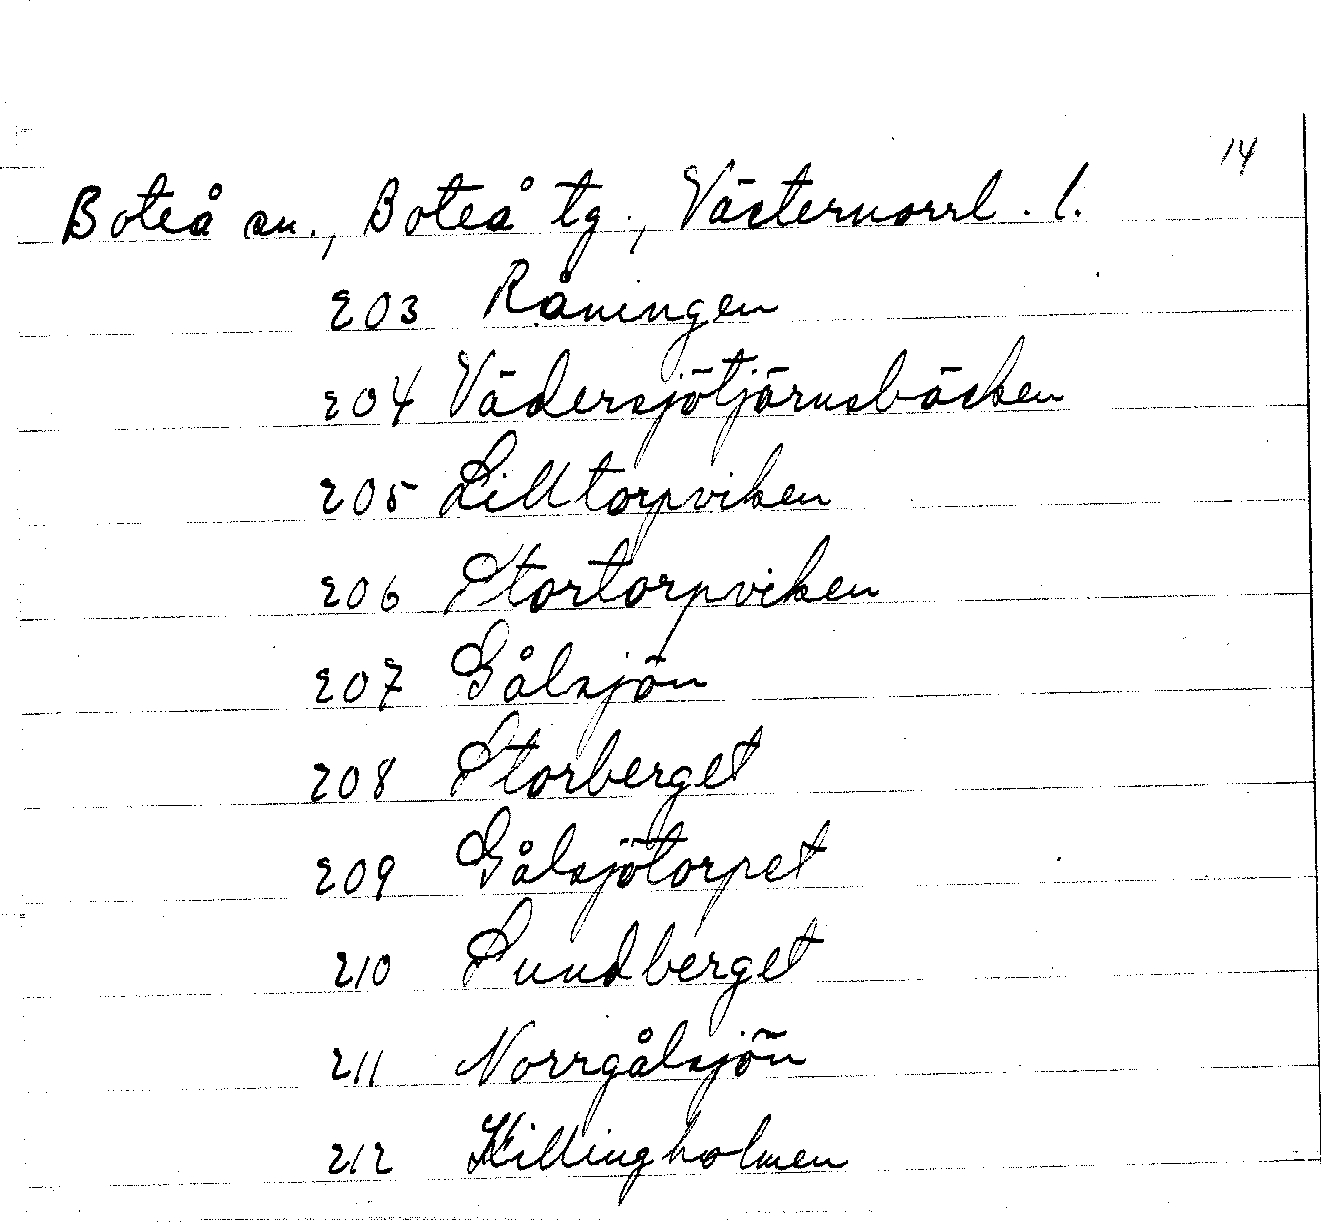 14
Boteå sn., Boteå tg., Västernorrl. l.
203 Råningen
204 Vädersjötjärnsbäcken
205 Lilltorpviken
206 Stortorpviken
207 Gålsjön
208 Storberget
209 Gålsjötorpet
210 Sundberget
211 Norrgålsjön
212 Killingholmen